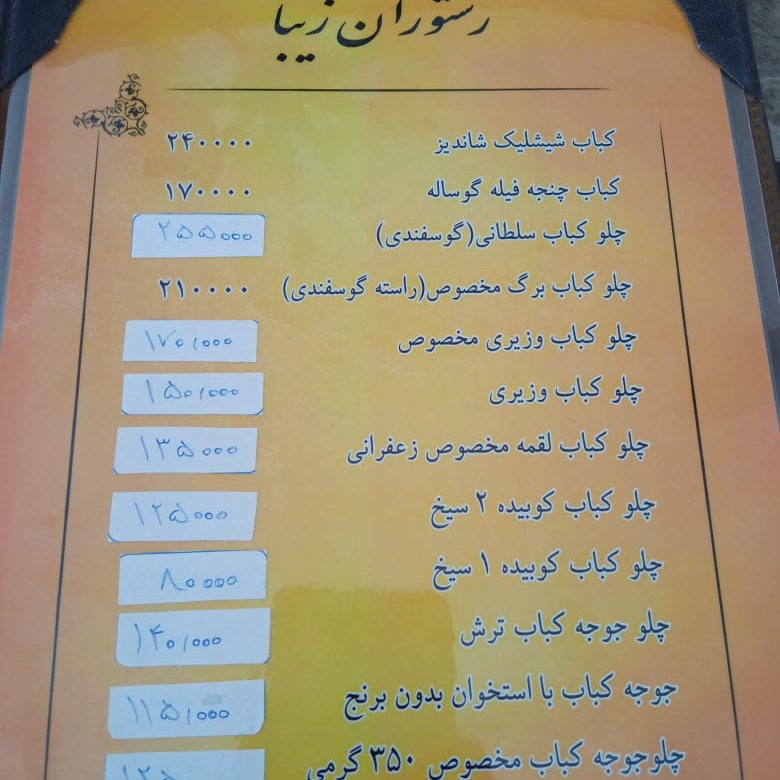 رستوران زیبا
کباب شیشلیک شاندیز ۲۴۰۰۰۰
کباب چنجه فیله گوساله ۱۷۰۰۰۰
چلو کباب سلطانی(گوسفندی) ۲۵۵۰۰۰
چلو کباب برگ مخصوص(راسته گوسفندی) ۲۱۰۰۰۰
چلو کباب وزیری مخصوص ۱۷۰,۰۰۰
چلو کباب وزیری ۱۵۰,۰۰۰
چلو کباب لقمه مخصوص زعفرانی ۱۳۵۰۰۰
چلو کباب کوبیده ۲ سیخ ۱۲۵۰۰۰
چلو کباب کوبیده ۱ سیخ ۸۰۰۰۰
چلو جوجه کباب ترش ۱۴۰,۰۰۰
جوجه کباب با استخوان بدون برنج ۱۱۵,۰۰۰
چلوجوجه کباب مخصوص ۳۵۰ گرمی